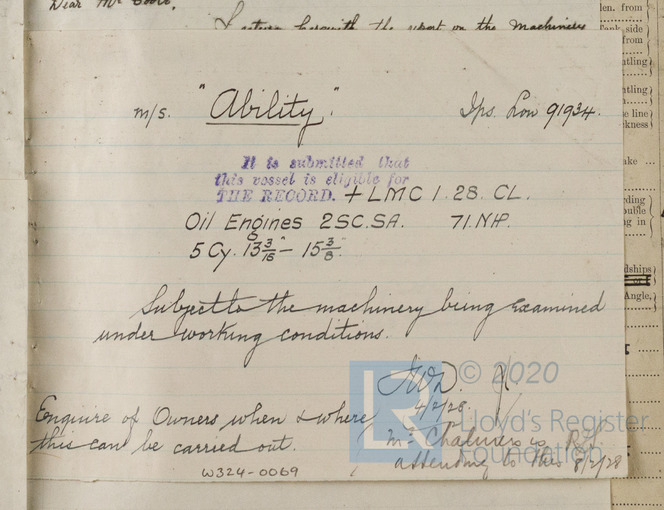 Dear Mr
I return herewith the report on the machinery
m/s. "Ability" Ips. Lon 91934.
It is submitted that
this vessel is eligible for
THE RECORD. + LMC 1.28. CL.
Oil Engines 2SC.SA. 71.NHP.
5 Cy. 13 3/16" - 15 3/8".
Subject to the machinery being examined
under working conditions.
JWD.
4/2/28
Enquire of Owners when & where
this can be carried out.
Mr Chalmers is
attending to this 8/2/28
W324-0069
© 2020
LR
Lloyd's Register
Foundation
len. from
side
from
ntling
ntling
line
kness
ake
ding
ouble
ng in
dships
Angle.